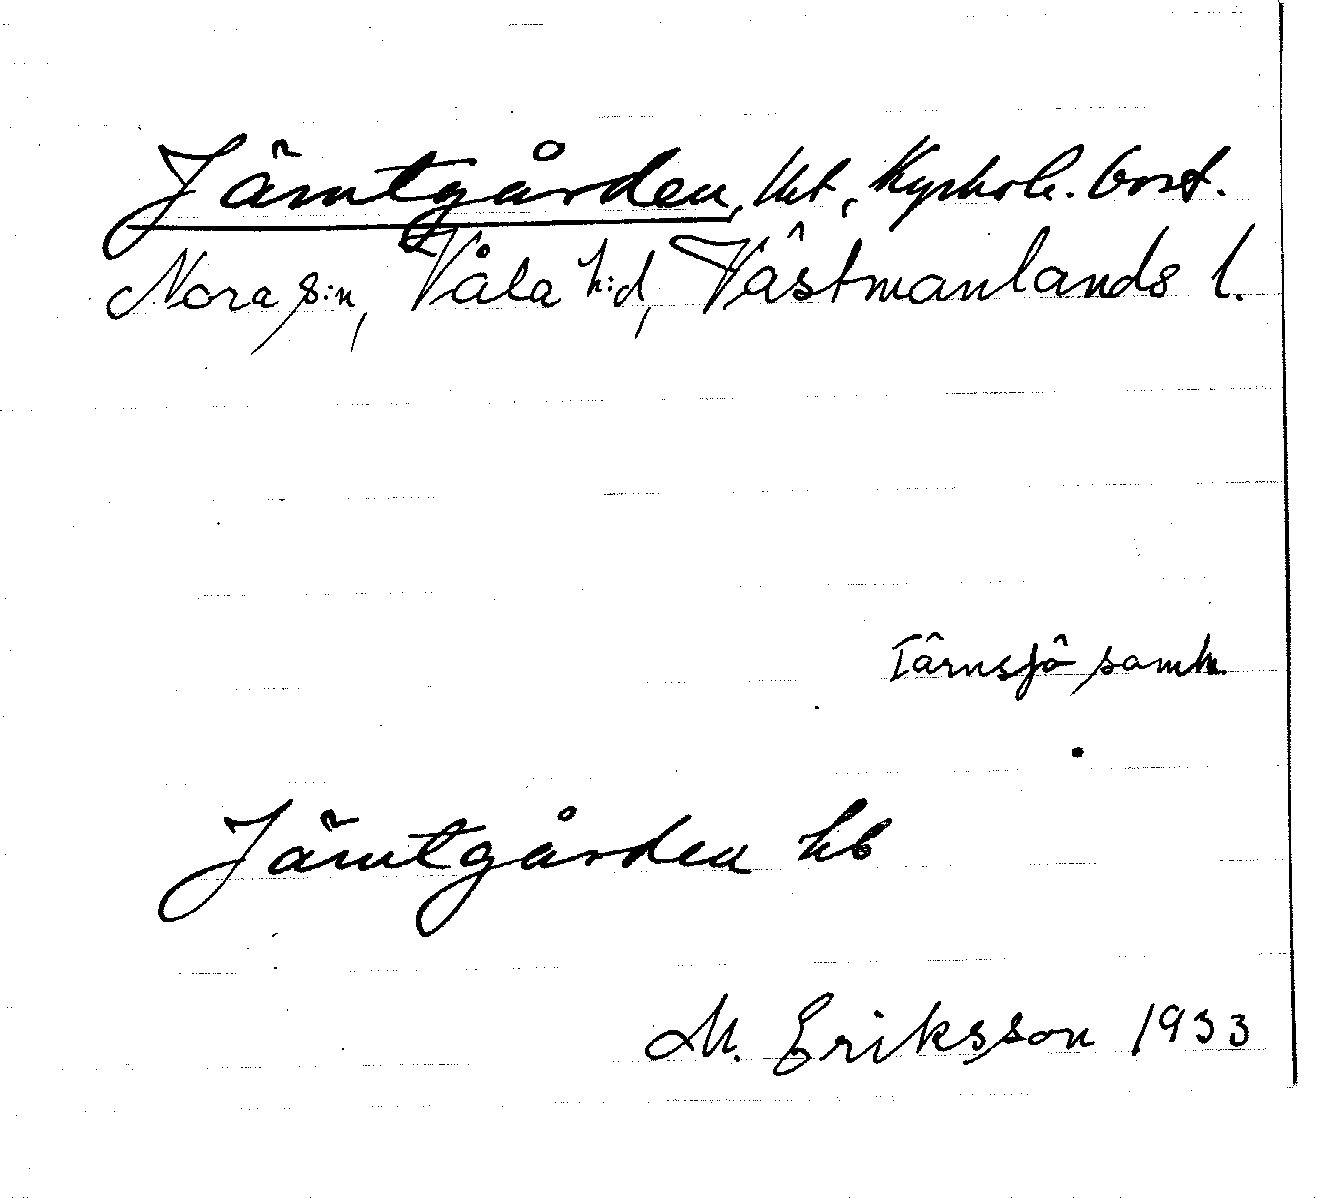 Jämtgården, Kyrkoh. bost.
Nora s:n, Våla h:d, Västmanlands l.
Tärnsjö samh.
Jämtgården hb
M. Eriksson 1933